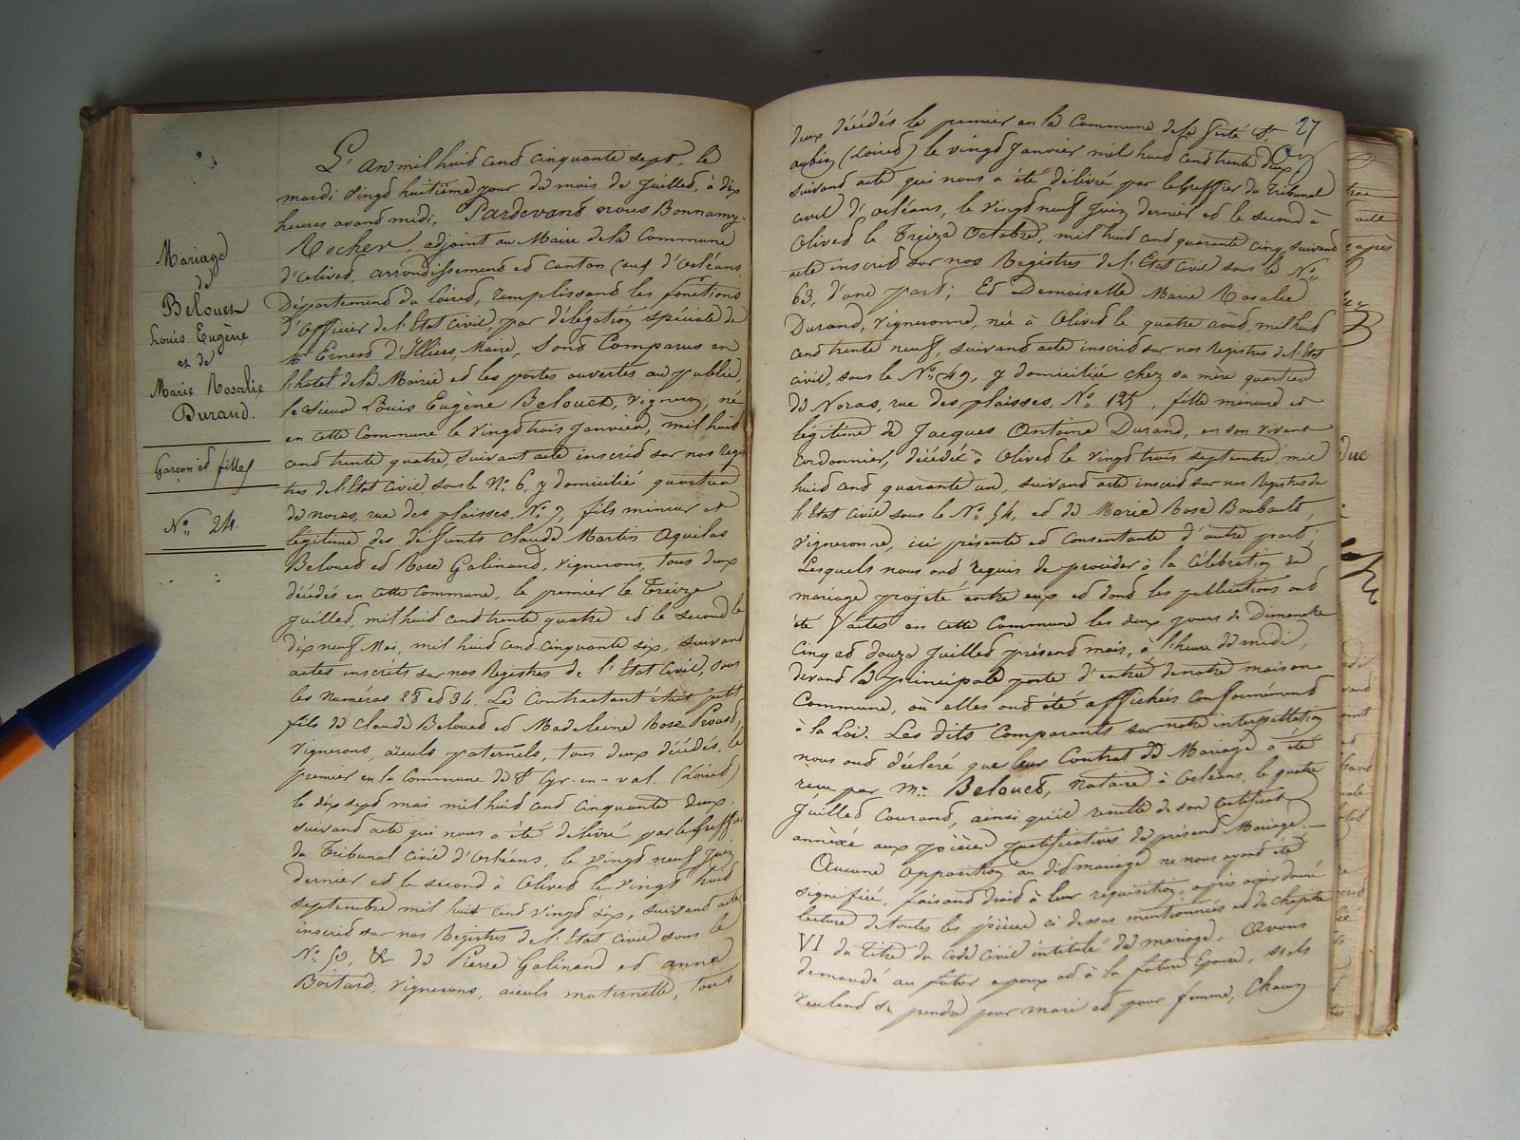 Mariage
de
Belouet
Louis Eugène
et de
Marie Rosalie
Durand.
Garçon et fille
N° 24.
L'An mil huit cent cinquante sept, le
mardi vingt huitième jour du mois de Juillet, à dix
heures avant midi, Pardevant nous Bonnamy-
Rocher, adjoint au Maire de la Commune
d'Olivet, arrondissement et Canton sud d'Orléans,
Département du Loiret, remplissant les fonctions
d'officier de l'Etat Civil, par délégation spéciale de
Mr Ernest d'Illiers, Maire, Sont Comparus en
l'hotel de la Mairie et les portes ouvertes au public,
le Sieur Louis Eugène Belouet, vigneron, né
en cette Commune le vingt trois Janvier, mil huit
cent trente quatre, suivant acte inscrit sur nos regis
tres de l'Etat Civil sous le N° 6, y domicilié quartier
de noras, rue des plaisses, N° 7, fils mineur et
légitime des defunts Claude Martin Aquilas
Belouet et Rose Galinand, vignerons, tous deux
décédés en cette Commune, le premier le treize
juillet, mil huit cent trente quatre et le second le
dix neuf Mai, mil huit cent cinquante six, suivant
actes inscrits sur nos Registres de l'Etat Civil, sous
les numéros 28 et 34. Le Contractant étant petit
fils de Claude Belouet et Madeleine Rose Proust,
vignerons, aïeuls paternels, tous deux décédés, le
premier en la Commune de St Cyr-en-val (Loiret)
le dix sept mai mil huit cent cinquante deux,
suivant acte qui nous a été délivré par le Greffier
du Tribunal civil d'Orléans, le vingt neuf Juin
dernier et la seconde à Olivet le vingt huit
septembre mil huit cent vingt six, suivant acte
inscrit sur nos Registres de l'Etat Civil sous le
N° 50, & de Pierre Galinand et anne
Boitard, vignerons, aïeuls maternels, tous
27
deux décédés le premier en la Commune de la ferté St
aubin (Loiret) le vingt Janvier mil huit cent trente deux,
suivant acte qui nous a été délivré par le Greffier du Tribunal
civil d'orléans, le vingt neuf Juin dernier et le second à
Olivet le treize Octobre, mil huit cent quarante cinq, suivant
acte inscrit sur nos Registres de l'Etat Civil sous le N°
63, d'une part; Et Demoiselle Marie Rosalie
Durand, vigneronne, née à Olivet le quatre août, mil huit
cent trente neuf, suivant acte inscrit sur nos Registres de l'Etat
civil sous le N° 49, y domiciliée chez sa mère quartier
de Noras, rue des plaisses, N° 125, fille mineure et
légitime de Jacques Antoine Durand, en son vivant
Cordonnier, décédé à Olivet le vingt trois septembre mil
huit cent quarante un, suivant acte inscrit sur nos Registres de
l'Etat Civil sous le N° 54, et de Marie Rose Boubault,
vigneronne, ici présente et consentante d'autre part;
Lesquels nous ont requis de procéder à la Célébration du
mariage projeté entre eux et dont les publications ont
été faites en cette Commune les deux jours de Dimanche
cinq et douze Juillet présent mois, à l'heure de midi,
devant la principale porte d'entrée de notre maison
Commune, où elles ont été affichées conformément
à la Loi. Les dits Comparants sur notre interpellation
nous ont déclaré que leur Contrat de Mariage a été
reçu par Me Belouet, Notaire à Orléans, le quatre
Juillet Courant, ainsi qu'il résulte de son certificat
annèxé aux pièces justificatives du présent Mariage.
Aucune opposition au dit mariage ne nous ayant été
signifiée, faisant droit à leur réquisition, après avoir donné
lecture de toutes les pièces ci dessus mentionnées et du chapitre
VI du titre du code civil intitulé du mariage. Avons
demandé au futur epoux et à la future Epouse, s'ils
veulent se prendre pour mari et pour femme, Chacun